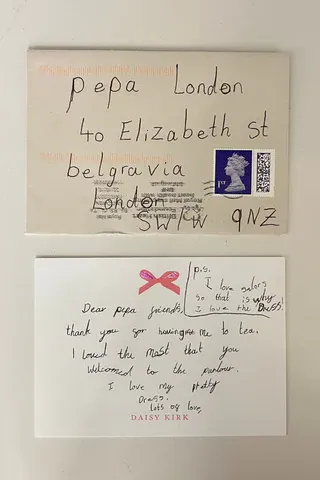 pepa London
40 Elizabeth St
belgravia
London
SW1W 9NZ
1ST
P.S.
I love sailors
so that is why
I love the Dress!
Dear pepa friends,
thank you for having me to tea.
I loved the most that you
Welcomed to the parlour.
I love my pretty
Dress.
Lots of love,
DAISY KIRK